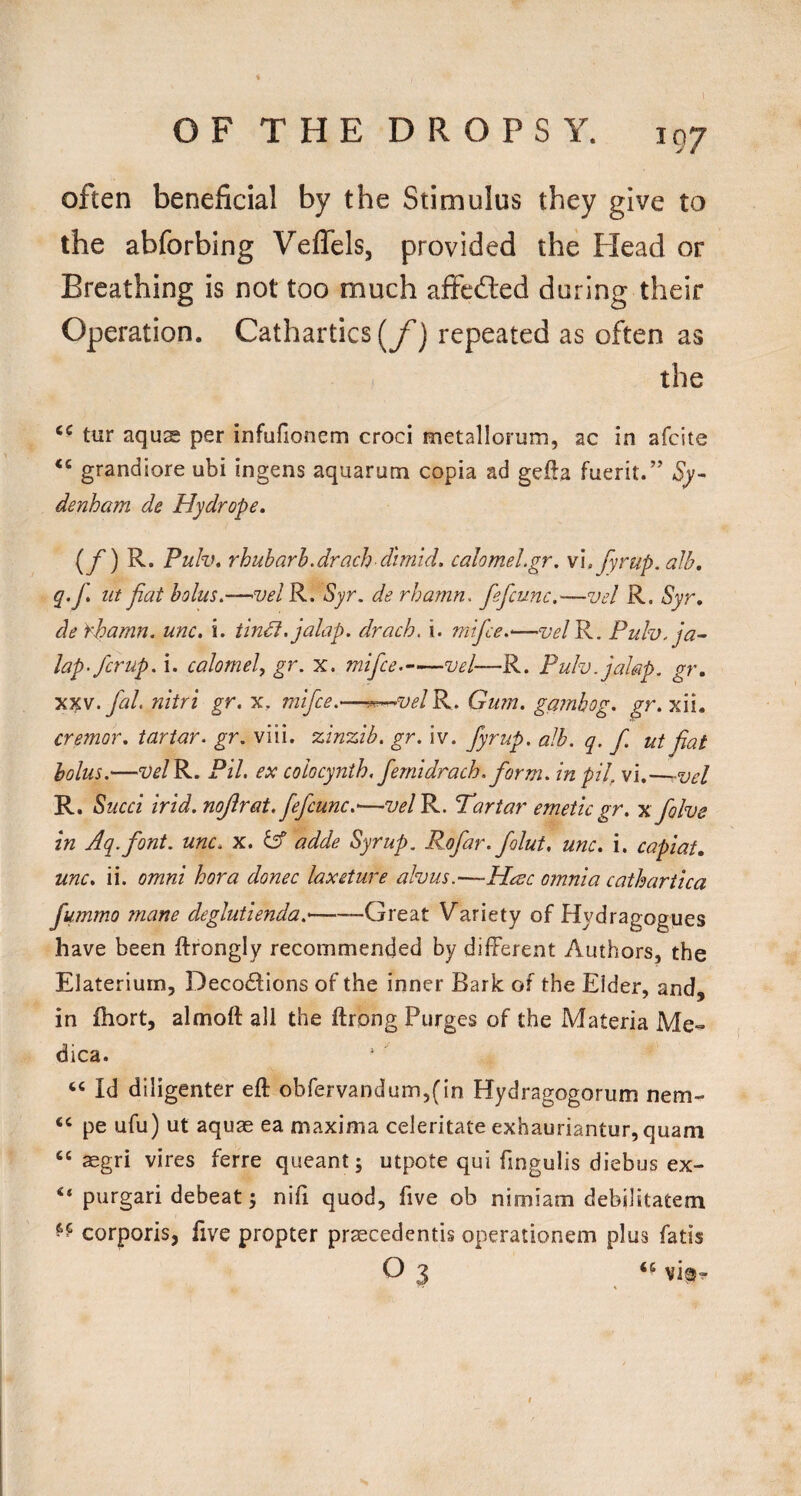 OF THE DROPSY. 197
often beneficial by the Stimulus they give to
the abſorbing Veſſels, provided the Head or
Breathing is not too much affected during their
Operation. Cathartics (ſ) repeated as often as
the
“ tur aquæ per infuſionem croci metallorum, ac in aſcite
“ grandiore ubi ingens aquarum copia ad geſta fuerit.” Sy-
denham de Hydrope.
(ſ) R. Pulv. rhubarb. drach. dimid. calomel. gr. vi. ſyrup. alb.
q. ſ. ut fiat bolus.—vel R. Syr. de rhamn. ſeſcunc.—vel R. Syr.
de rhamn. unc. i. tinct. jalap. drach. i. miſce.—vel R. Pulv. ja-
lap. ſcrup. i. calomel, gr. x. miſce.—vel—R. Pulv. jalap. gr.
xxv. ſal. nitri gr. x. miſce.—vel R. Gum. gambog. gr. xii.
cremor. tartar. gr. viii. zinzib. gr. iv. ſyrup. alb. q. ſ. ut fiat
bolus.—vel R. Pil. ex colocynth. ſemidrach. form. in pil. vi.—vel
R. Succi irid. noſtrat. ſeſcunc.—vel R. Tartar emetic gr. x ſolve
in Aq. font. unc. x. & adde Syrup. Roſar. ſolut. unc. i. capiat.
unc. ii. omni hora donec laxeture alvus.—Hæc omnia cathartica
ſummo mane deglutienda.——Great Variety of Hydragogues
have been ſtrongly recommended by different Authors, the
Elaterium, Decoctions of the inner Bark of the Elder, and,
in ſhort, almoſt all the ſtrong Purges of the Materia Me-
dica.
“ Id diligenter eſt obſervandum, (in Hydragogorum nem-
“ pe uſu) ut aquæ ea maxima celeritate exhauriantur, quam
“ ægri vires ferre queant; utpote qui ſingulis diebus ex-
“ purgari debeat; niſi quod, ſive ob nimiam debilitatem
“ corporis, ſive propter præcedentis operationem plus ſatis
O 3 “ vio-